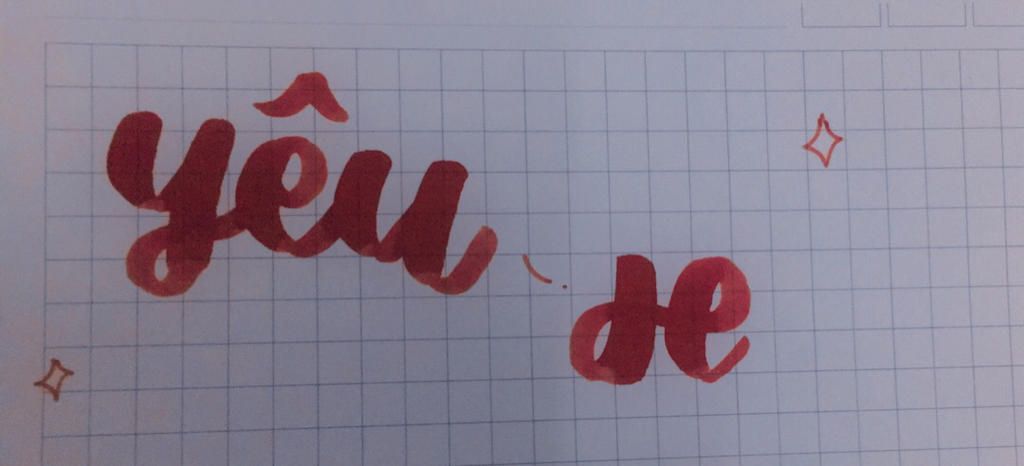 yêu
je